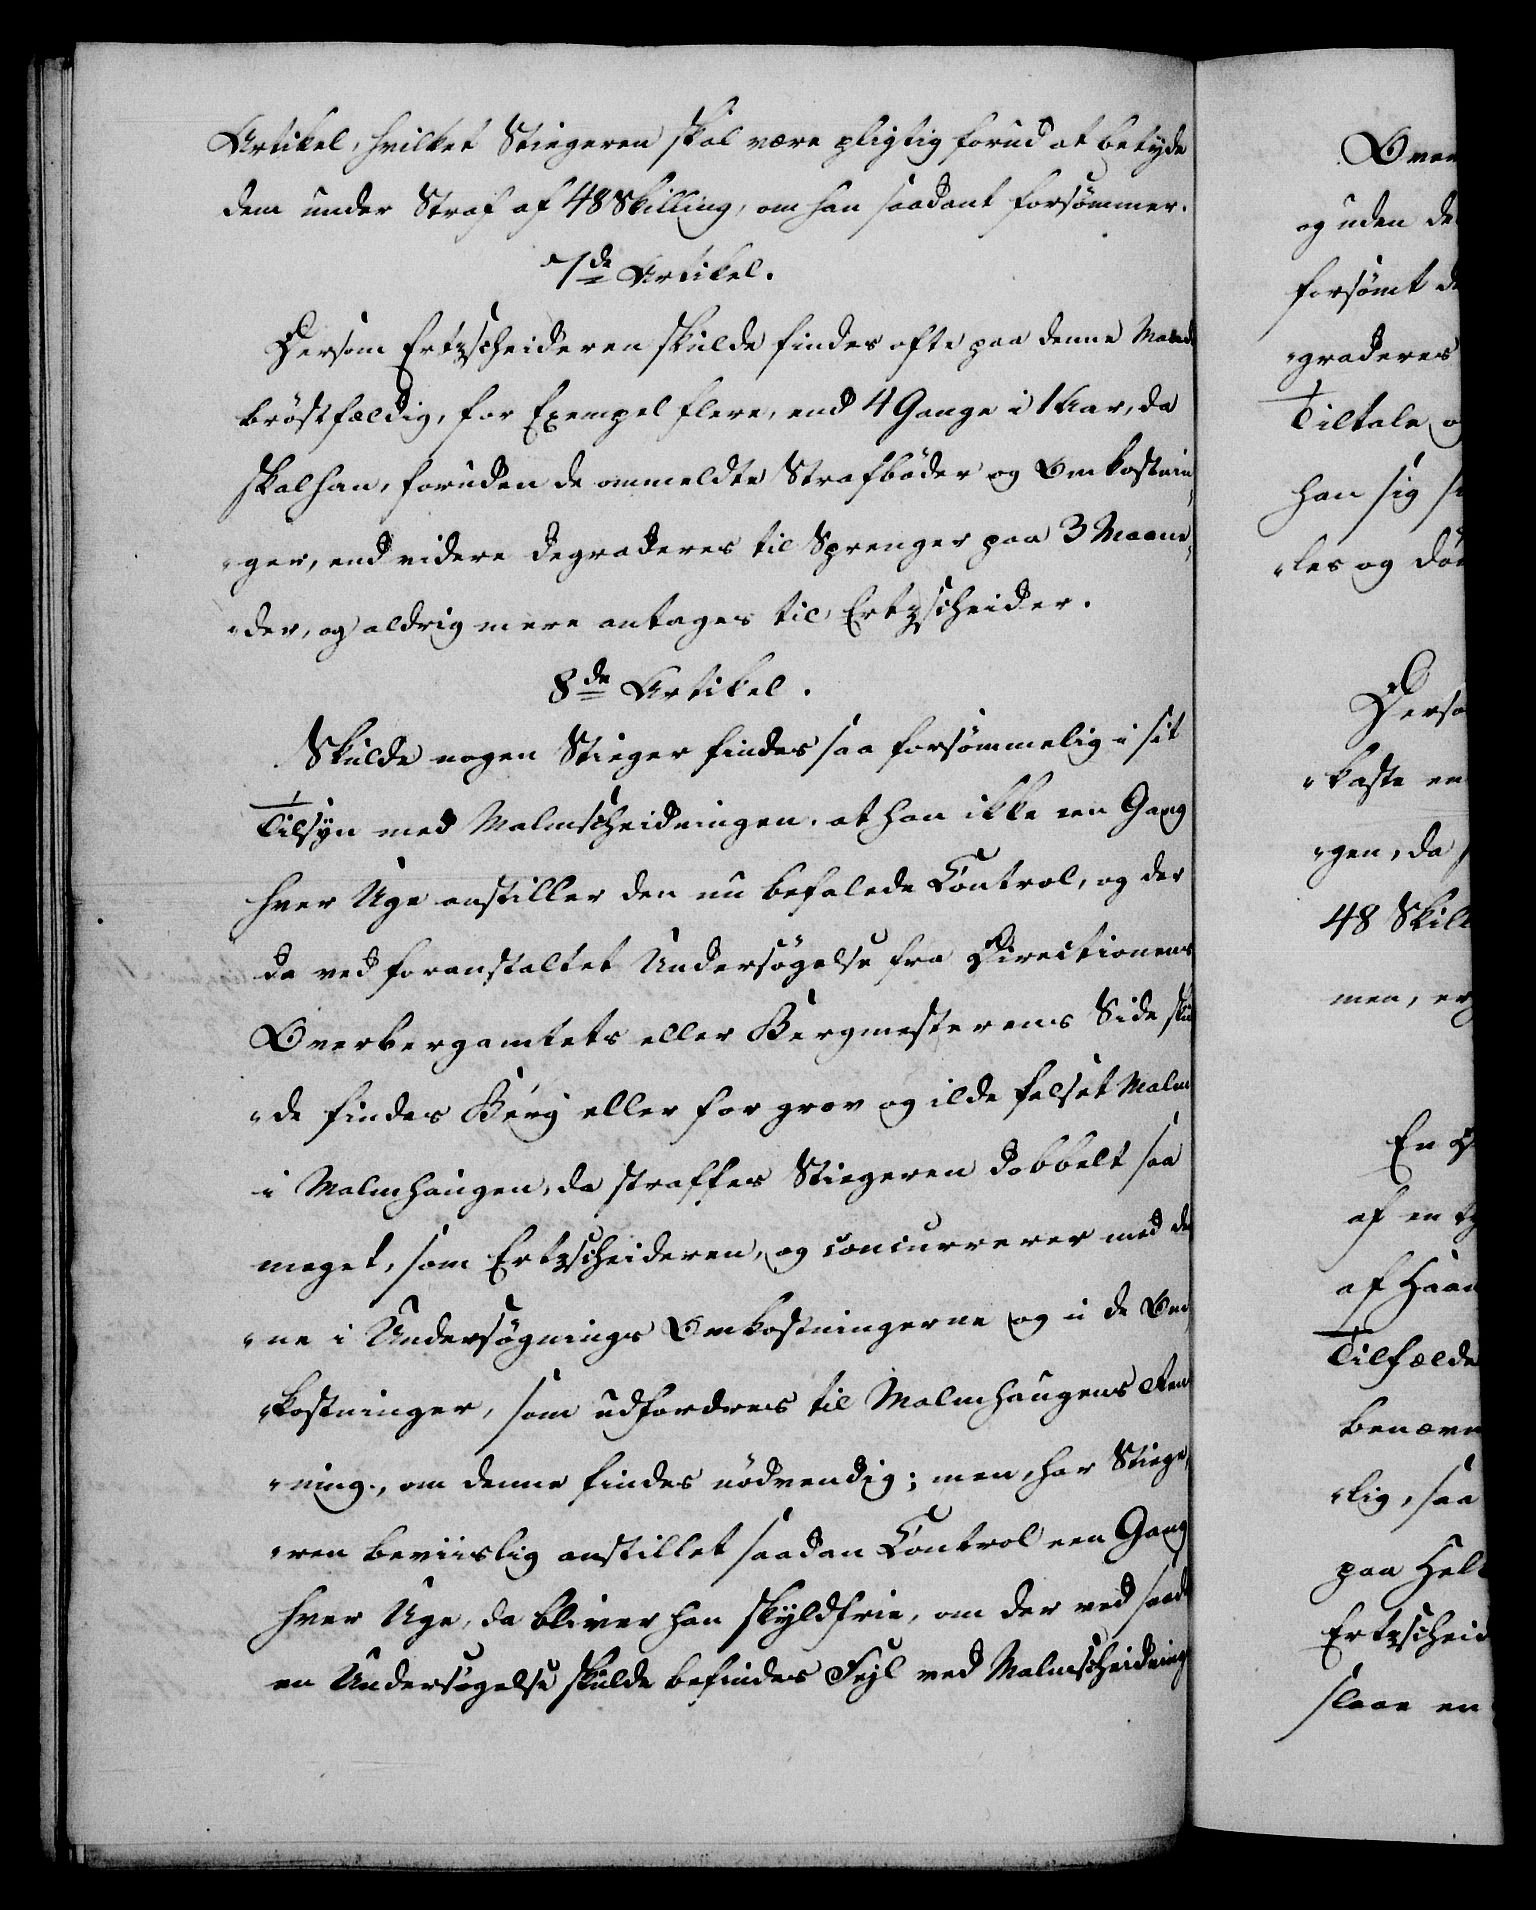 Artikel, hvilket Stiegeren skal være pligtig forud at betyde
dem under Straf af 48 Skilling, om han saadant forsømmer.
7de Artikel.
Dersom Ertzscheideren skulde findes ofte paa denne Maade
brøstfældig, for Exempel flere, end 4 Gange i 1 Aar, da
skal han, foruden de ommeldte Strafbøder og Omkostnin¬
"ger, end videre degraderes til Sprenger paa 3 Maane¬
"der, og aldrig mere antages til Ertzscheider.
8de Artikel.
Skulde nogen Stieger findes saa forsømmelig i sit
Tilsyn med Malmscheidningen, at han ikke een Gang
hver Uge anstiller den nu befalede Control, og der
da ved foranstaltet Undersøgelse fra Directionens
Overbergamtets eller Bergmesterens Side skul
"de findes Berg eller for grov og ilde felset Malm
i Malmhaugen, da straffes Stiegeren dobbelt saa
meget, som Ertzscheideren, og concurrerer med den
"ne i Undersøgnings Omkostningerne og i de Om
"kostninger, som udfordres til Malmhaugens Ren
"ning, om denne findes nødvendig; men, har Stiege,
"ren beviislig anstillet saadan Control een Gang
hver Uge, da bliver han skyldfrie, om der ved saad
en Undersøgelse skulde befindes Fejl ved Malmscheidning
Over
og uden de
forsømt de
"graderes
Tiltale o
han sig
"les og døm
Derso
"kaste
"gen, da
48 Skill
men, er
En
af en
af Haan
Tilfælde
benævn
"lig, saa
paa Hel
Ertzscheid
slaae en